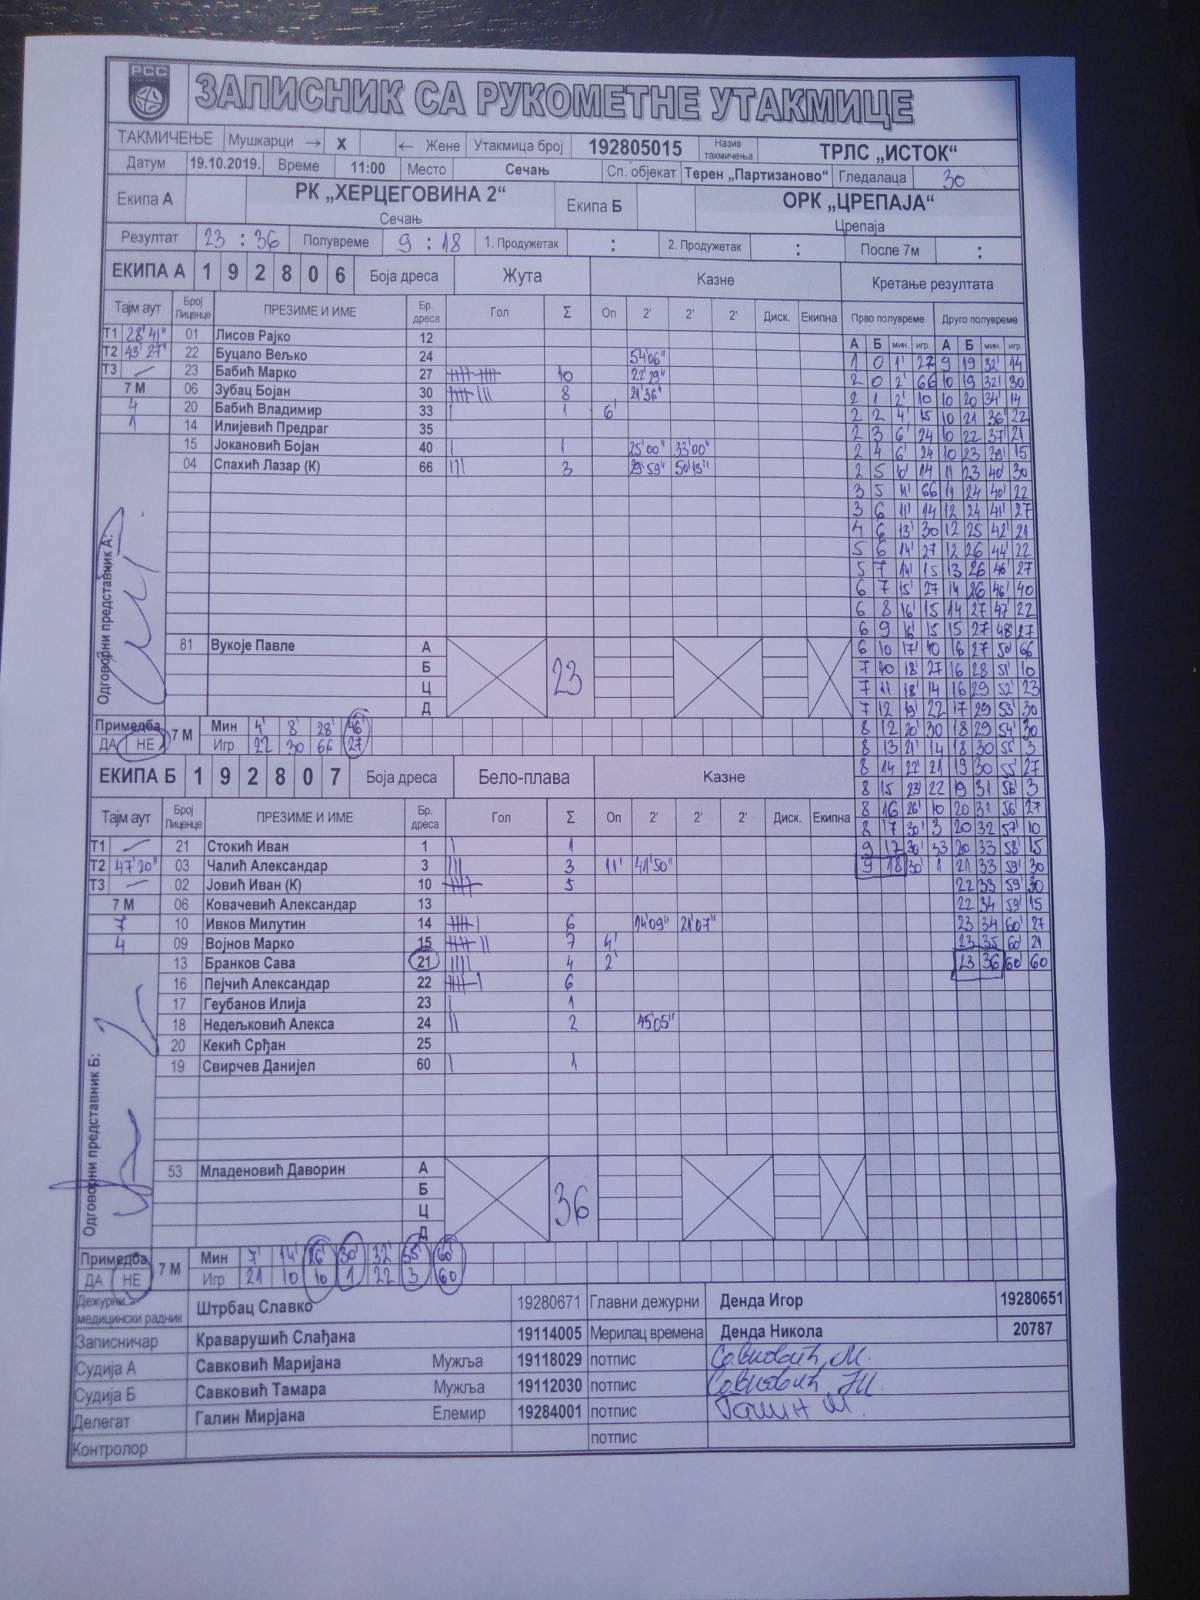 РСС
ЗАПИСНИК СА РУКОМЕТНЕ УТАКМИЦЕ
ТАКМИЧЕЊЕ Мушкарци → X ← Жене Утакмица број 192805015 Назив такмичења ТРЛС „ИСТОК“
Датум 19.10.2019. Време 11:00 Место Сечањ Сп. објекат Терен „Партизаново“ Гледалаца 30
Екипа А РК „ХЕРЦЕГОВИНА 2“ Сечањ Екипа Б ОРК „ЦРЕПАЈА“ Црепаја
Резултат 23 : 36 Полувреме 9 : 18 1. Продужетак : 2. Продужетак : После 7м :
ЕКИПА А 1 9 2 8 0 6 Боја дреса Жута Казне Кретање резултата
Тајм аут Број Лиценце ПРЕЗИМЕ И ИМЕ Бр. дреса Гол Σ Оп 2' 2' 2' Диск. Екипна Прво полувреме Друго полувреме
А Б мин. игр. А Б мин. игр.
Т1 28'41" 01 Лисов Рајко 12
Т2 43'27" 22 Буцало Вељко 24 54'06"
Т3 – 23 Бабић Марко 27 10 22'29"
7 М 06 Зубац Бојан 30 8 21'36"
4 20 Бабић Владимир 33 1 6'
1 14 Илијевић Предраг 35
15 Јокановић Бојан 40 1 25'00" 33'00"
04 Спахић Лазар (К) 66 3 29'59" 50'15"
Одговорни представник А:
81 Вукоје Павле А Б Ц Д 23
Примедба ДА НЕ 7 М
Мин 4' 8' 28' 46'
Игр 22 30 66 27
ЕКИПА Б 1 9 2 8 0 7 Боја дреса Бело-плава Казне
Тајм аут Број Лиценце ПРЕЗИМЕ И ИМЕ Бр. дреса Гол Σ Оп 2' 2' 2' Диск. Екипна
Т1 – 21 Стокић Иван 1 1
Т2 47'20" 03 Чалић Александар 3 3 11' 41'50"
Т3 – 02 Јовић Иван (К) 10 5
7 М 06 Ковачевић Александар 13
7 10 Ивков Милутин 14 6 14'09" 21'07"
4 09 Војнов Марко 15 7 4'
13 Бранков Сава 21 4 2'
16 Пејчић Александар 22 6
17 Геубанов Илија 23 1
18 Недељковић Алекса 24 2 45'05"
20 Кекић Срђан 25
19 Свирчев Данијел 60 1
Одговорни представник Б:
53 Младеновић Даворин А Б Ц Д 36
Примедба ДА НЕ 7 М
Мин 7' 14' 26' 30' 32' 55' 60'
Игр 21 10 10 1 22 3 60
1 0 1' 27 9 19 32' 14
2 0 2' 66 10 19 32' 30
2 1 2' 10 10 20 34' 14
2 2 4' 15 10 21 36' 22
2 3 6' 24 10 22 37' 21
2 4 6' 24 10 23 39' 15
2 5 10' 14 11 23 40' 30
3 5 11' 66 11 24 40' 22
3 6 11' 14 12 24 41' 27
4 6 13' 30 12 25 42' 21
5 6 14' 27 12 26 44' 22
5 7 14' 15 13 26 46' 27
6 7 15' 27 14 26 46' 40
6 8 16' 15 14 27 47' 22
6 9 16' 15 15 27 48' 27
6 10 17' 10 16 27 50' 66
7 10 18' 27 16 28 51' 10
7 11 18' 14 16 29 52' 23
7 12 19' 22 17 29 53' 30
8 12 20' 30 18 29 54' 30
8 13 21' 14 18 30 55' 3
8 14 22' 21 19 30 55' 27
8 15 23' 22 19 31 56' 3
8 16 26' 10 20 31 56' 27
8 17 30' 3 20 32 57' 10
9 17 30' 33 20 33 58' 15
9 18 30' 1 21 33 59' 30
22 33 59' 30
22 34 59' 15
23 34 60' 27
23 35 60' 21
23 36 60 60
Дежурни медицински радник Штрбац Славко 19280671 Главни дежурни Денда Игор 19280651
Записничар Краварушић Слађана 19114005 Мерилац времена Денда Никола 20787
Судија А Савковић Маријана Мужља 19118029 потпис Савковић М.
Судија Б Савковић Тамара Мужља 19112030 потпис Савковић
Делегат Галин Мирјана Елемир 19284001 потпис Галин М.
Контролор потпис